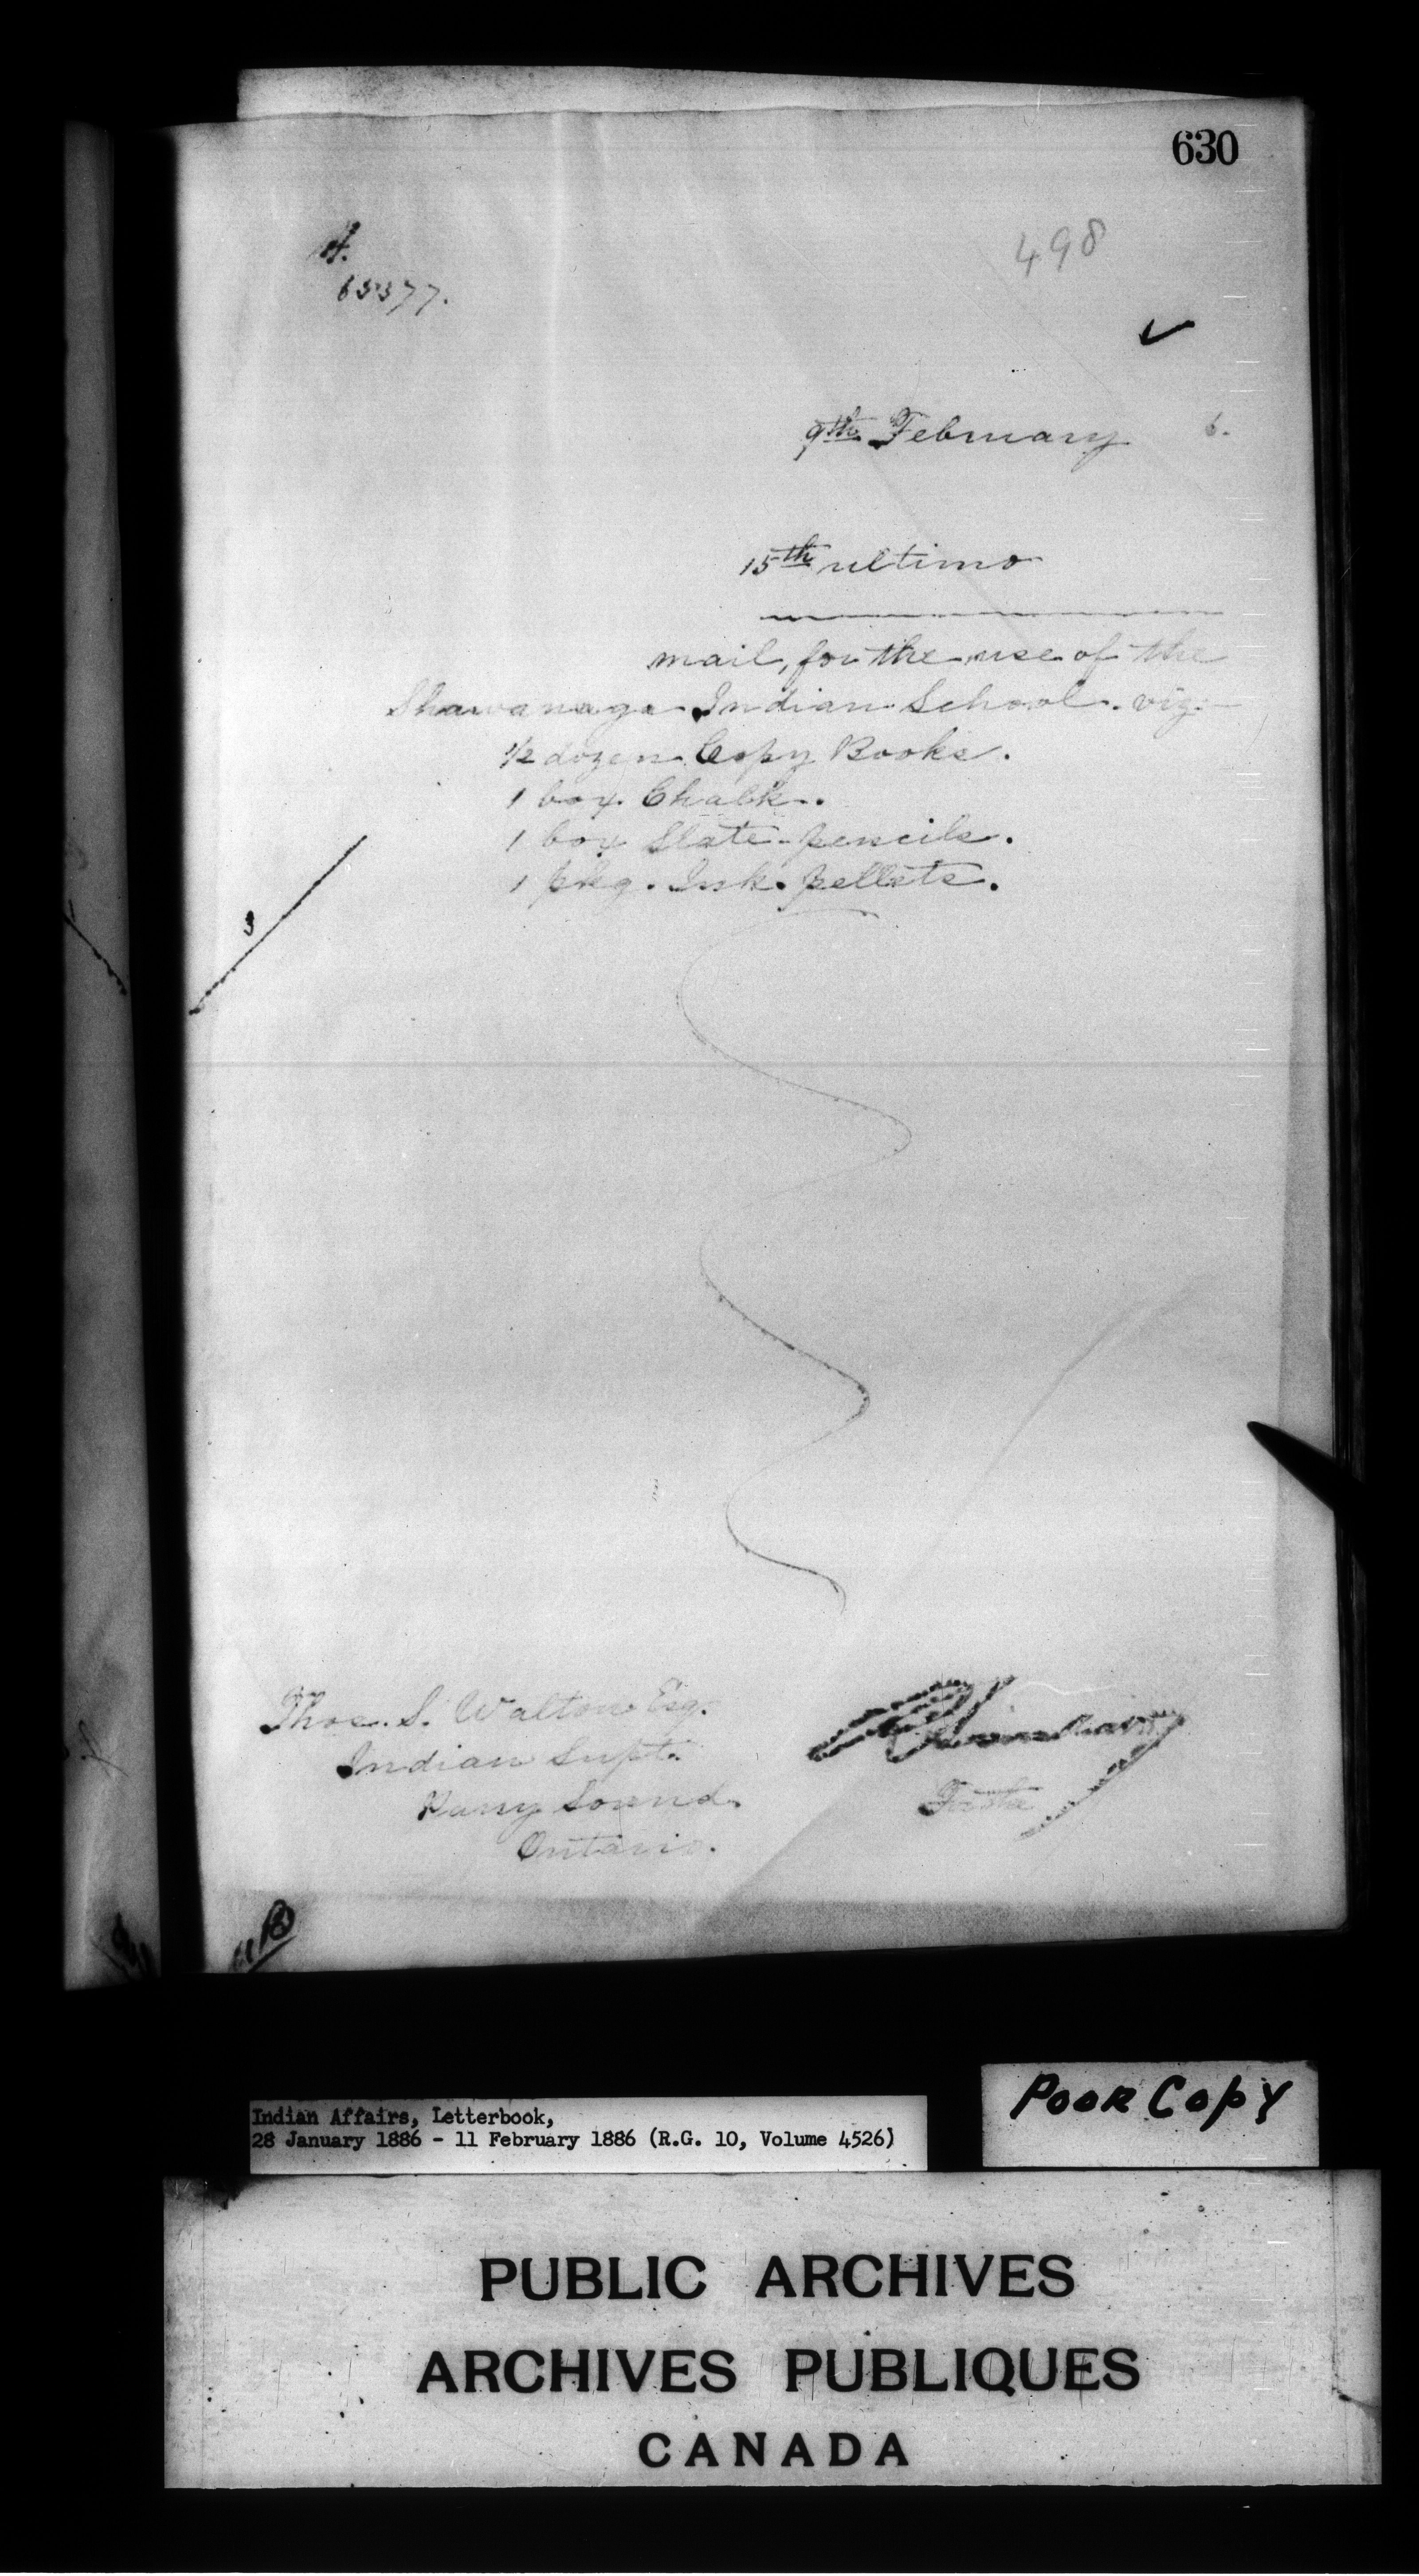 630
498
63377.
9th February 6.
15th ultimo
mail, for the use of the
Shawanaga Indian School. viz:—
1/2 dozen Copy Books.
1 box Chalk.
1 box Slate-pencils.
1 pkg. Ink pellets.
3
Thos. S. Walton Esq.
Indian Supt.
Parry Sound.
Ontario.
Indian Affairs, Letterbook,
28 January 1886 - 11 February 1886 (R.G. 10, Volume 4526)
POOR COPY
PUBLIC ARCHIVES
ARCHIVES PUBLIQUES
CANADA